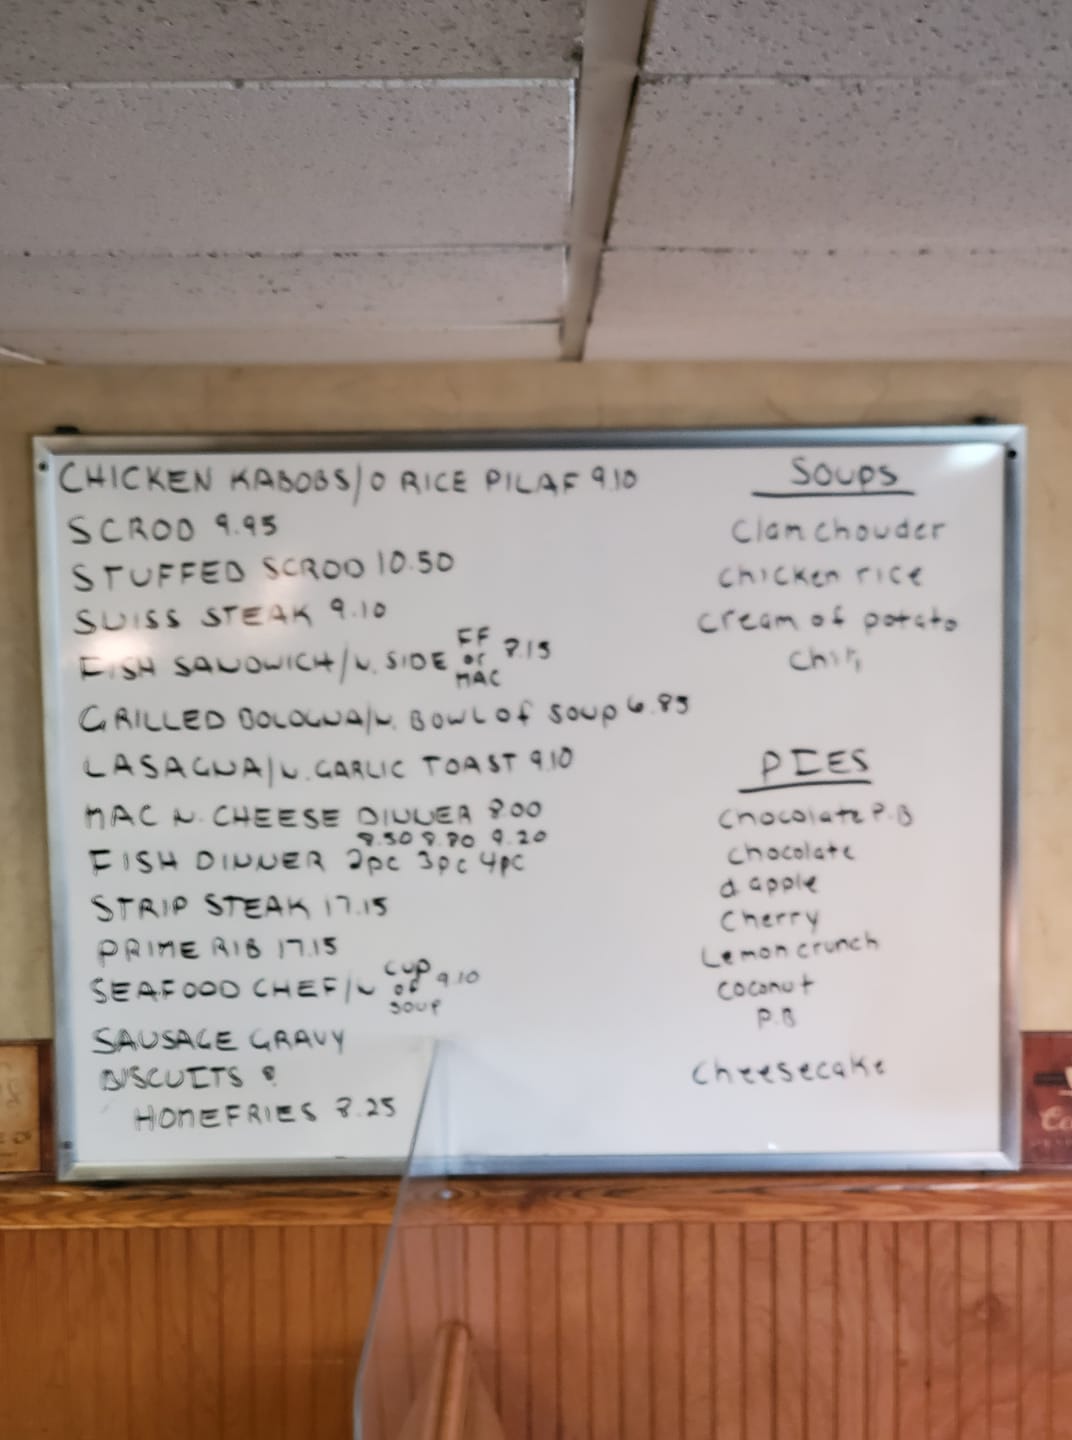 CHICKEN KABOBS/O RICE PILAF 9.10
SCROD 9.95
STUFFED SCROD 10.50
SWISS STEAK 9.10
FISH SANDWICH/W. SIDE FF or MAC 8.15
GRILLED BOLOGNA/W. BOWL OF SOUP 6.85
LASAGNA/W. GARLIC TOAST 9.10
MAC N. CHEESE DINNER 8.00
8.50 8.80 9.20
FISH DINNER 2pc 3pc 4pc
STRIP STEAK 17.15
PRIME RIB 17.15
SEAFOOD CHEF/W CUP OF SOUP 9.10
SAUSAGE GRAVY
BISCUITS &
HOMEFRIES 8.25
SOUPS
Clam chowder
chicken rice
cream of potato
chili
PIES
Chocolate P.B
chocolate
d apple
Cherry
Lemon crunch
coconut
P.B
Cheesecake